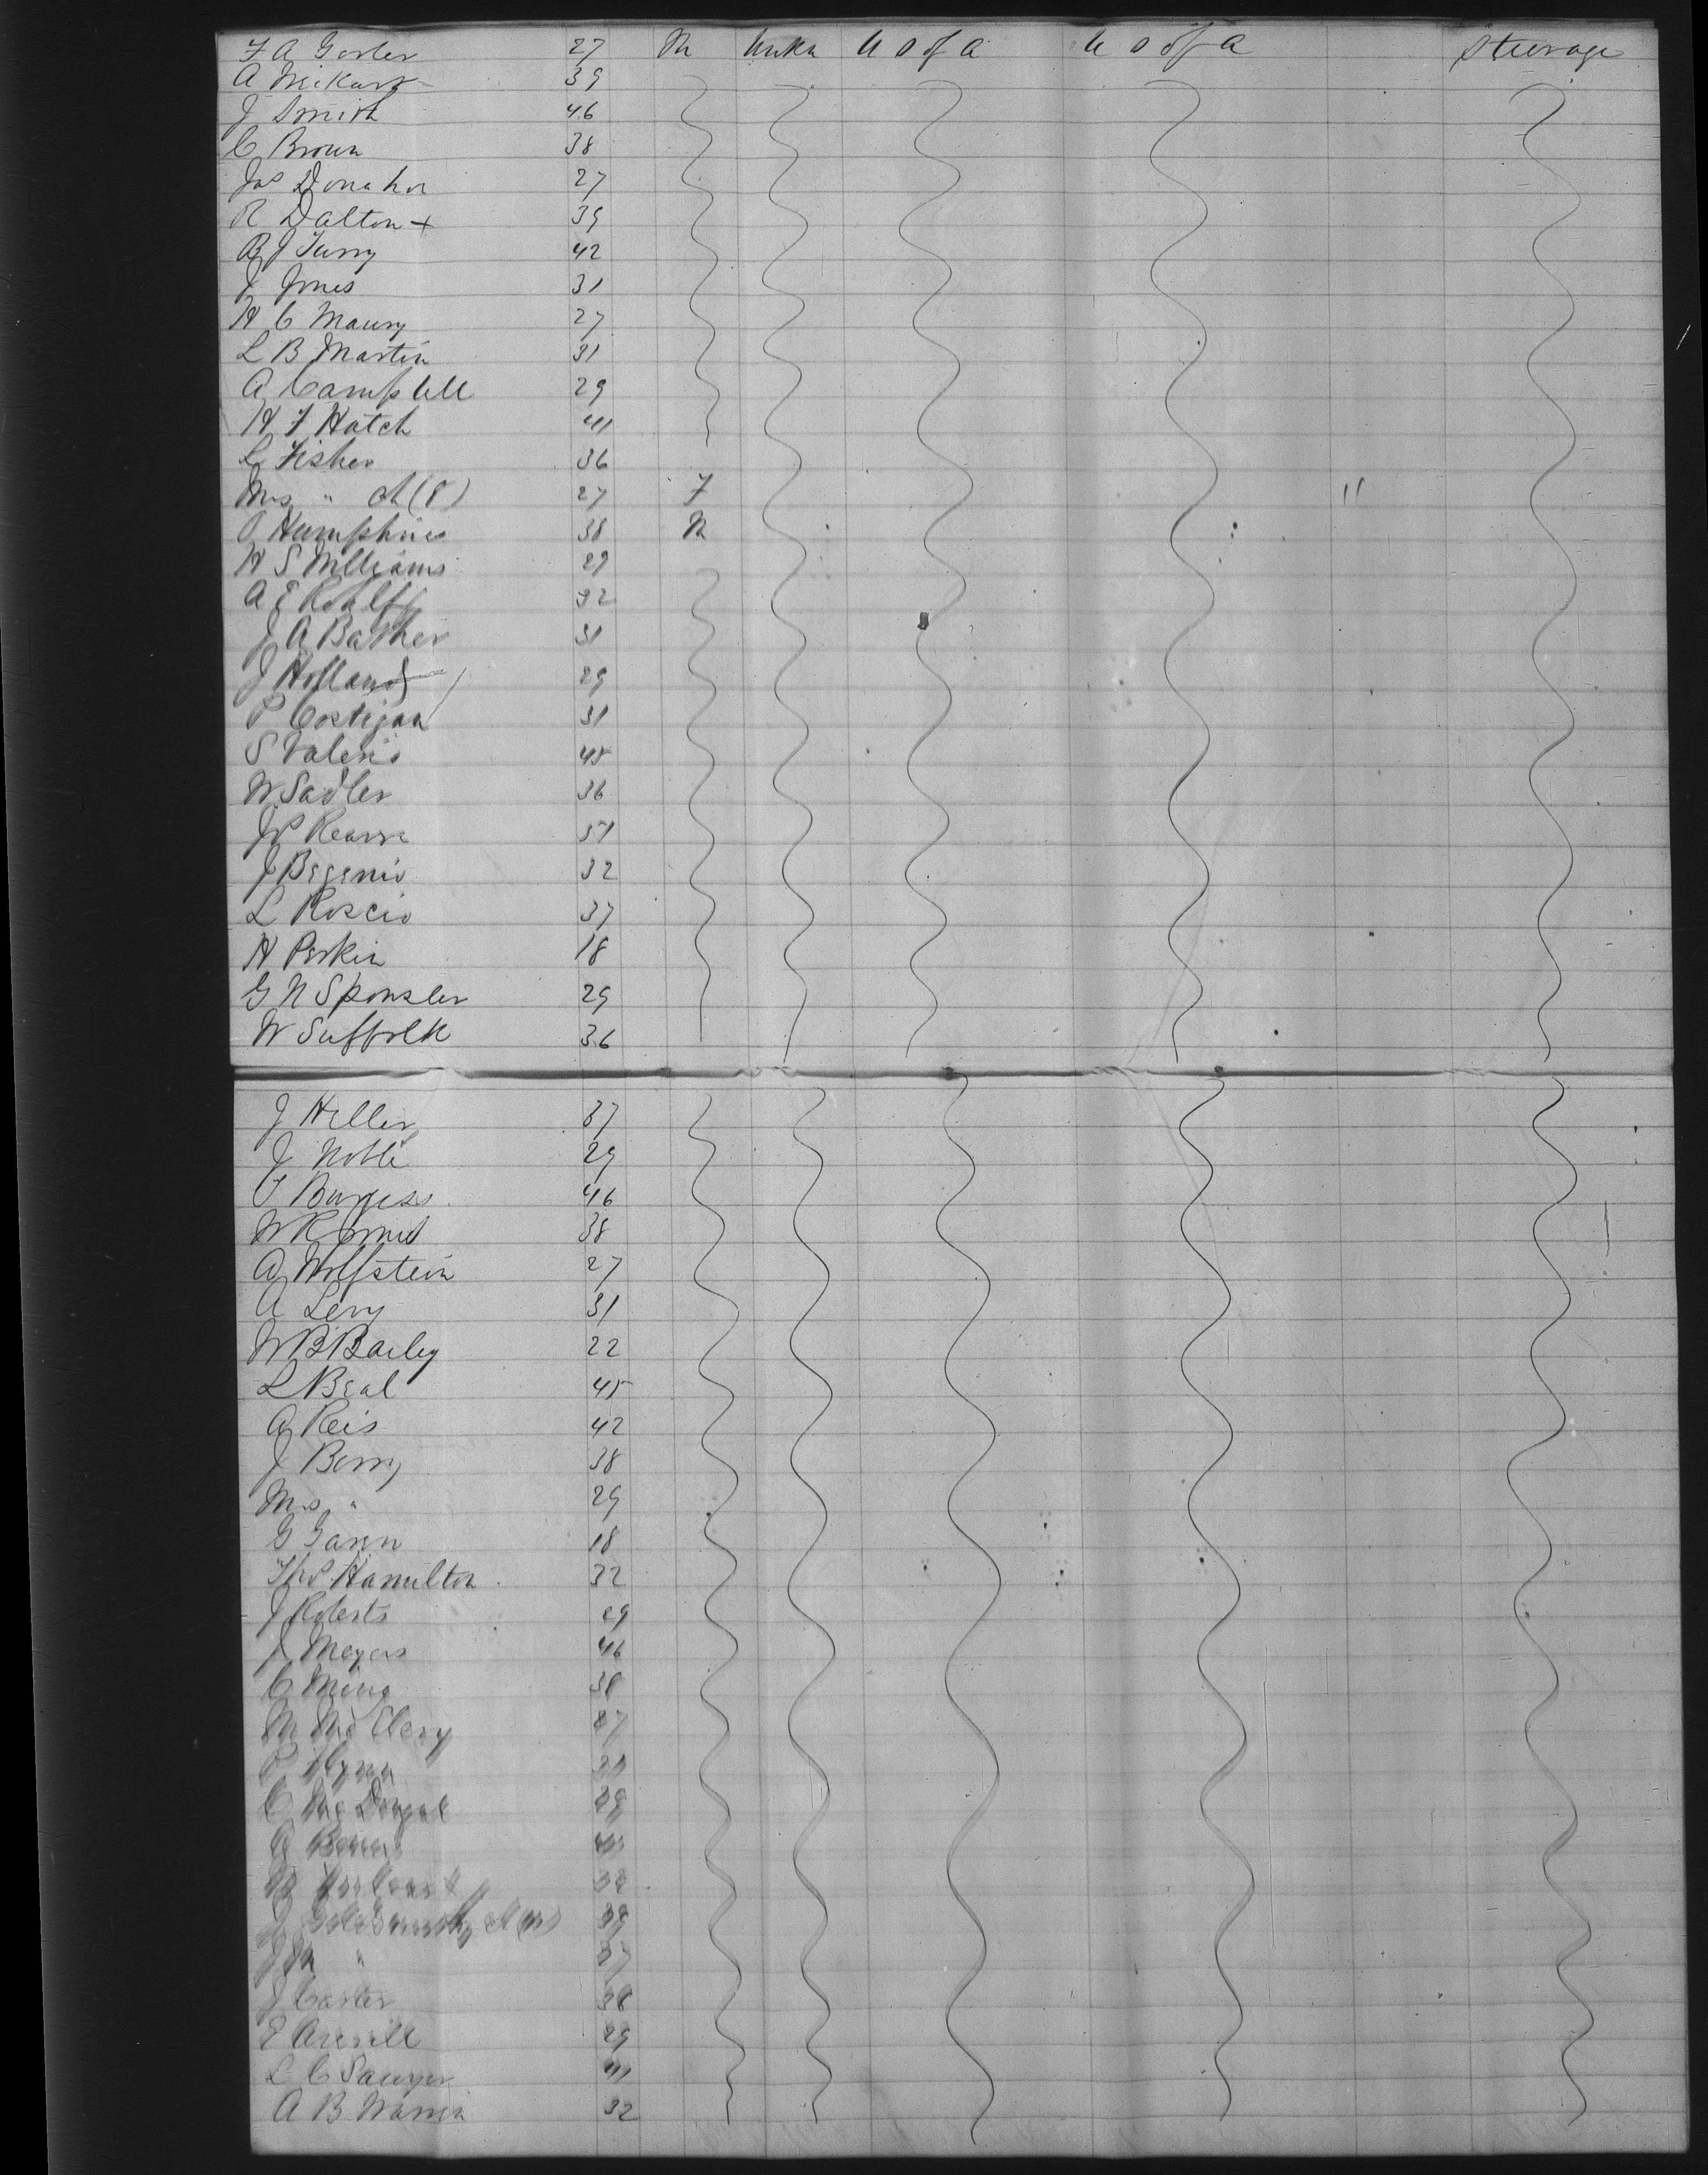 F A Gosler 27 M Unkn U S of A U S of A Steerage
A 39
J Smith 46
C Brown 38
Jas Donahoe 27
R Dalton + 39
B J Turry 42
J Jones 31
H C Maury 27
L B Martin 31
A Campbell 29
H F Hatch 41
L Fisher 36
Mrs " ch (8) 27 F "
P Humphries 38 M
H S Williams 29
A E Rohlffs 32
J A Barker 31
J Holland 29
P Costigan 31
S Valerio 45
W Sadler 36
Jas 37
J Begenio 32
L Roscio 37
H Perkin 18
G N Sponsler 29
W Suffolk 36
J Heller 37
J Noble 29
P Burgess 46
W R 38
A Wolfstein 27
A Levy 31
W B Bailey 22
L Beal 45
A Reis 42
J Berry 38
Mrs " 29
G 18
Thos Hamilton 32
J Roberts 29
J Meyers 46
C 38
M McClery 27
P Flynn 31
C McDougal 29
A
38
J Goldsmith 39
"
J Carter 38
E Averill 29
L C Sawyer 41
A B Warren 32